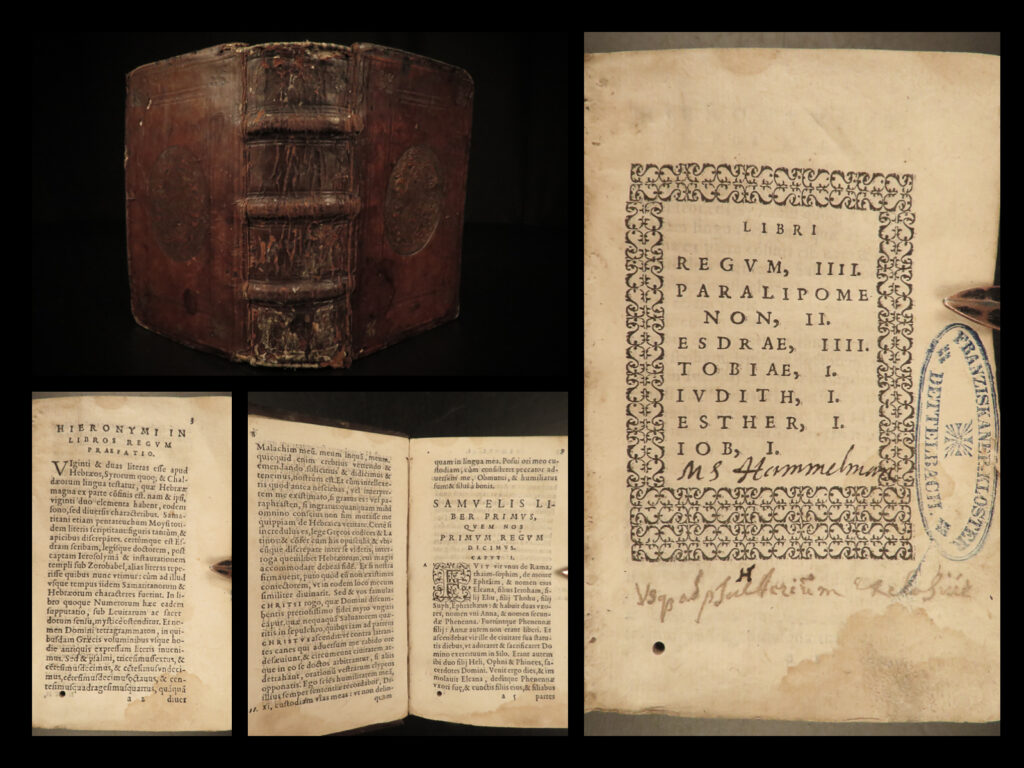 LIBRI
REGVM, IIII.
PARALIPOME
NON, II.
ESDRAE, IIII.
TOBIAE, I.
IVDITH, I.
ESTHER, I.
IOB, I.
MS Hammelman
FRANZISKANER-KLOSTER
DETTELBACH
3
HIERONYMI IN
LIBROS REGVM
PRAEFATIO.
VIginti & duas literas esse apud
Hebræos, Syrorum quoq; & Chal-
dæorum lingua testatur, quæ Hebrææ
magna ex parte cōfinis est. nam & ipsi,
viginti duo elementa habent, eodem
sono, sed diuersis characteribus. Sama-
ritani etiam pentateuchum Moysi toti-
dem literis scriptitant figuris tantùm, &
apicibus discrepātes. certúmque est Es-
dram scribam, legísque doctorem, post
captam Ierosolymā & instaurationem
templi sub Zorobabel, alias literas repe-
risse quibus nunc vtimur: cùm ad illud
vsque tempus iidem Samaritanorum &
Hebræorum characteres fuerint. In li-
bro quoque Numerorum hæc eadem
supputatio, sub Leuitarum ac sacer
dotum censu, mysticè ostenditur. Et no-
men Domini tetragrammaton, in qui-
busdam Græcis voluminibus vsque ho-
die antiquis expressum literis inueni-
mus. Sed & psalmi, tricesimussextus, &
centesimusdecimus, & cētesimusvndeci-
mus, cētesimusdecimusoctauus, & cen-
tesimusquadragesimusquartus, quāquā
a 2 diuer
8
Malachim meū. meum inquā, meum.
quicquid enim crebrius vertendo &
emendando solicitius & didicimus &
tenemus, nostrum est. Et cùm intellexe-
ris quod antea nesciebas, vel interpre-
tem me existimato, si gratus es: vel pa-
raphrasten, si ingratus: quanquam mihi
omnino conscius non sim mutasse me
quippiam de Hebraica veritate. Certè si
incredulus es, lege Gręcos codices & La
tinos: & cōfer cum his opusculis, & vbi-
cúnque discrepare inter se videris, inter-
roga quemlibet Hebræorum, cui magis
accommodare debeas fidē. Et si nostra
firmauerit, puto quòd eū non existimes
coniectorem, vt in eodem loco mecum
similiter diuinarit. Sed & vos famulas
CHRISTI rogo, quæ Domini discum-
bentis pretiosissimo fidei myro vngitis
caput, quæ nequaquam Saluatorem quæri-
tis in sepulchro, quibus iam ad patrem
CHRISTVS ascendit: vt contra latran-
tes canes qui aduersum me rabido ore
desæuiunt, & circumeunt ciuitatem at-
que in eo se doctos arbitrantur, si aliis
detrahant, orationū vestrarum clypeos
opponatis. Ego sciēs humilitatem meā,
illius semper sententiæ recordabor, Di-
xi, custodiam vias meas: vt non delin-
quam
9
quam in lingua mea. Posui ori meo cu-
stodiam, cùm consisteret peccator ad-
uersum me, Obmutui, & humiliatus
sum & silui à bonis.
SAMVELIS LI-
BER PRIMVS,
QVEM NOS
PRIMVM REGVM
DICIMVS.
CAPVT I.
A
FVIT vir vnus de Rama-
thaim-sophim, de monte
Ephraim, & nomen eius
Elcana, filius Ieroham, fi-
lij Eliu, filij Thohu, filij
Suph, Ephrathæus: & habuit duas vxo-
res, nomen vni Anna, & nomen secun-
dæ Phenenna. Fueruntque Phenennæ
filij: Annæ autem non erant liberi. Et
ascendebat vir ille de ciuitate sua statu-
tis diebus, vt adoraret & sacrificaret Do
mino exercituum in Silo. Erant autem
ibi duo filij Heli, Ophni & Phinees, sa-
cerdotes Domini. Venit ergo dies, & im
molauit Elcana, deditque Phenennæ
vxori suę, & cunctis filiis eius, & filiabus
a 5 partes